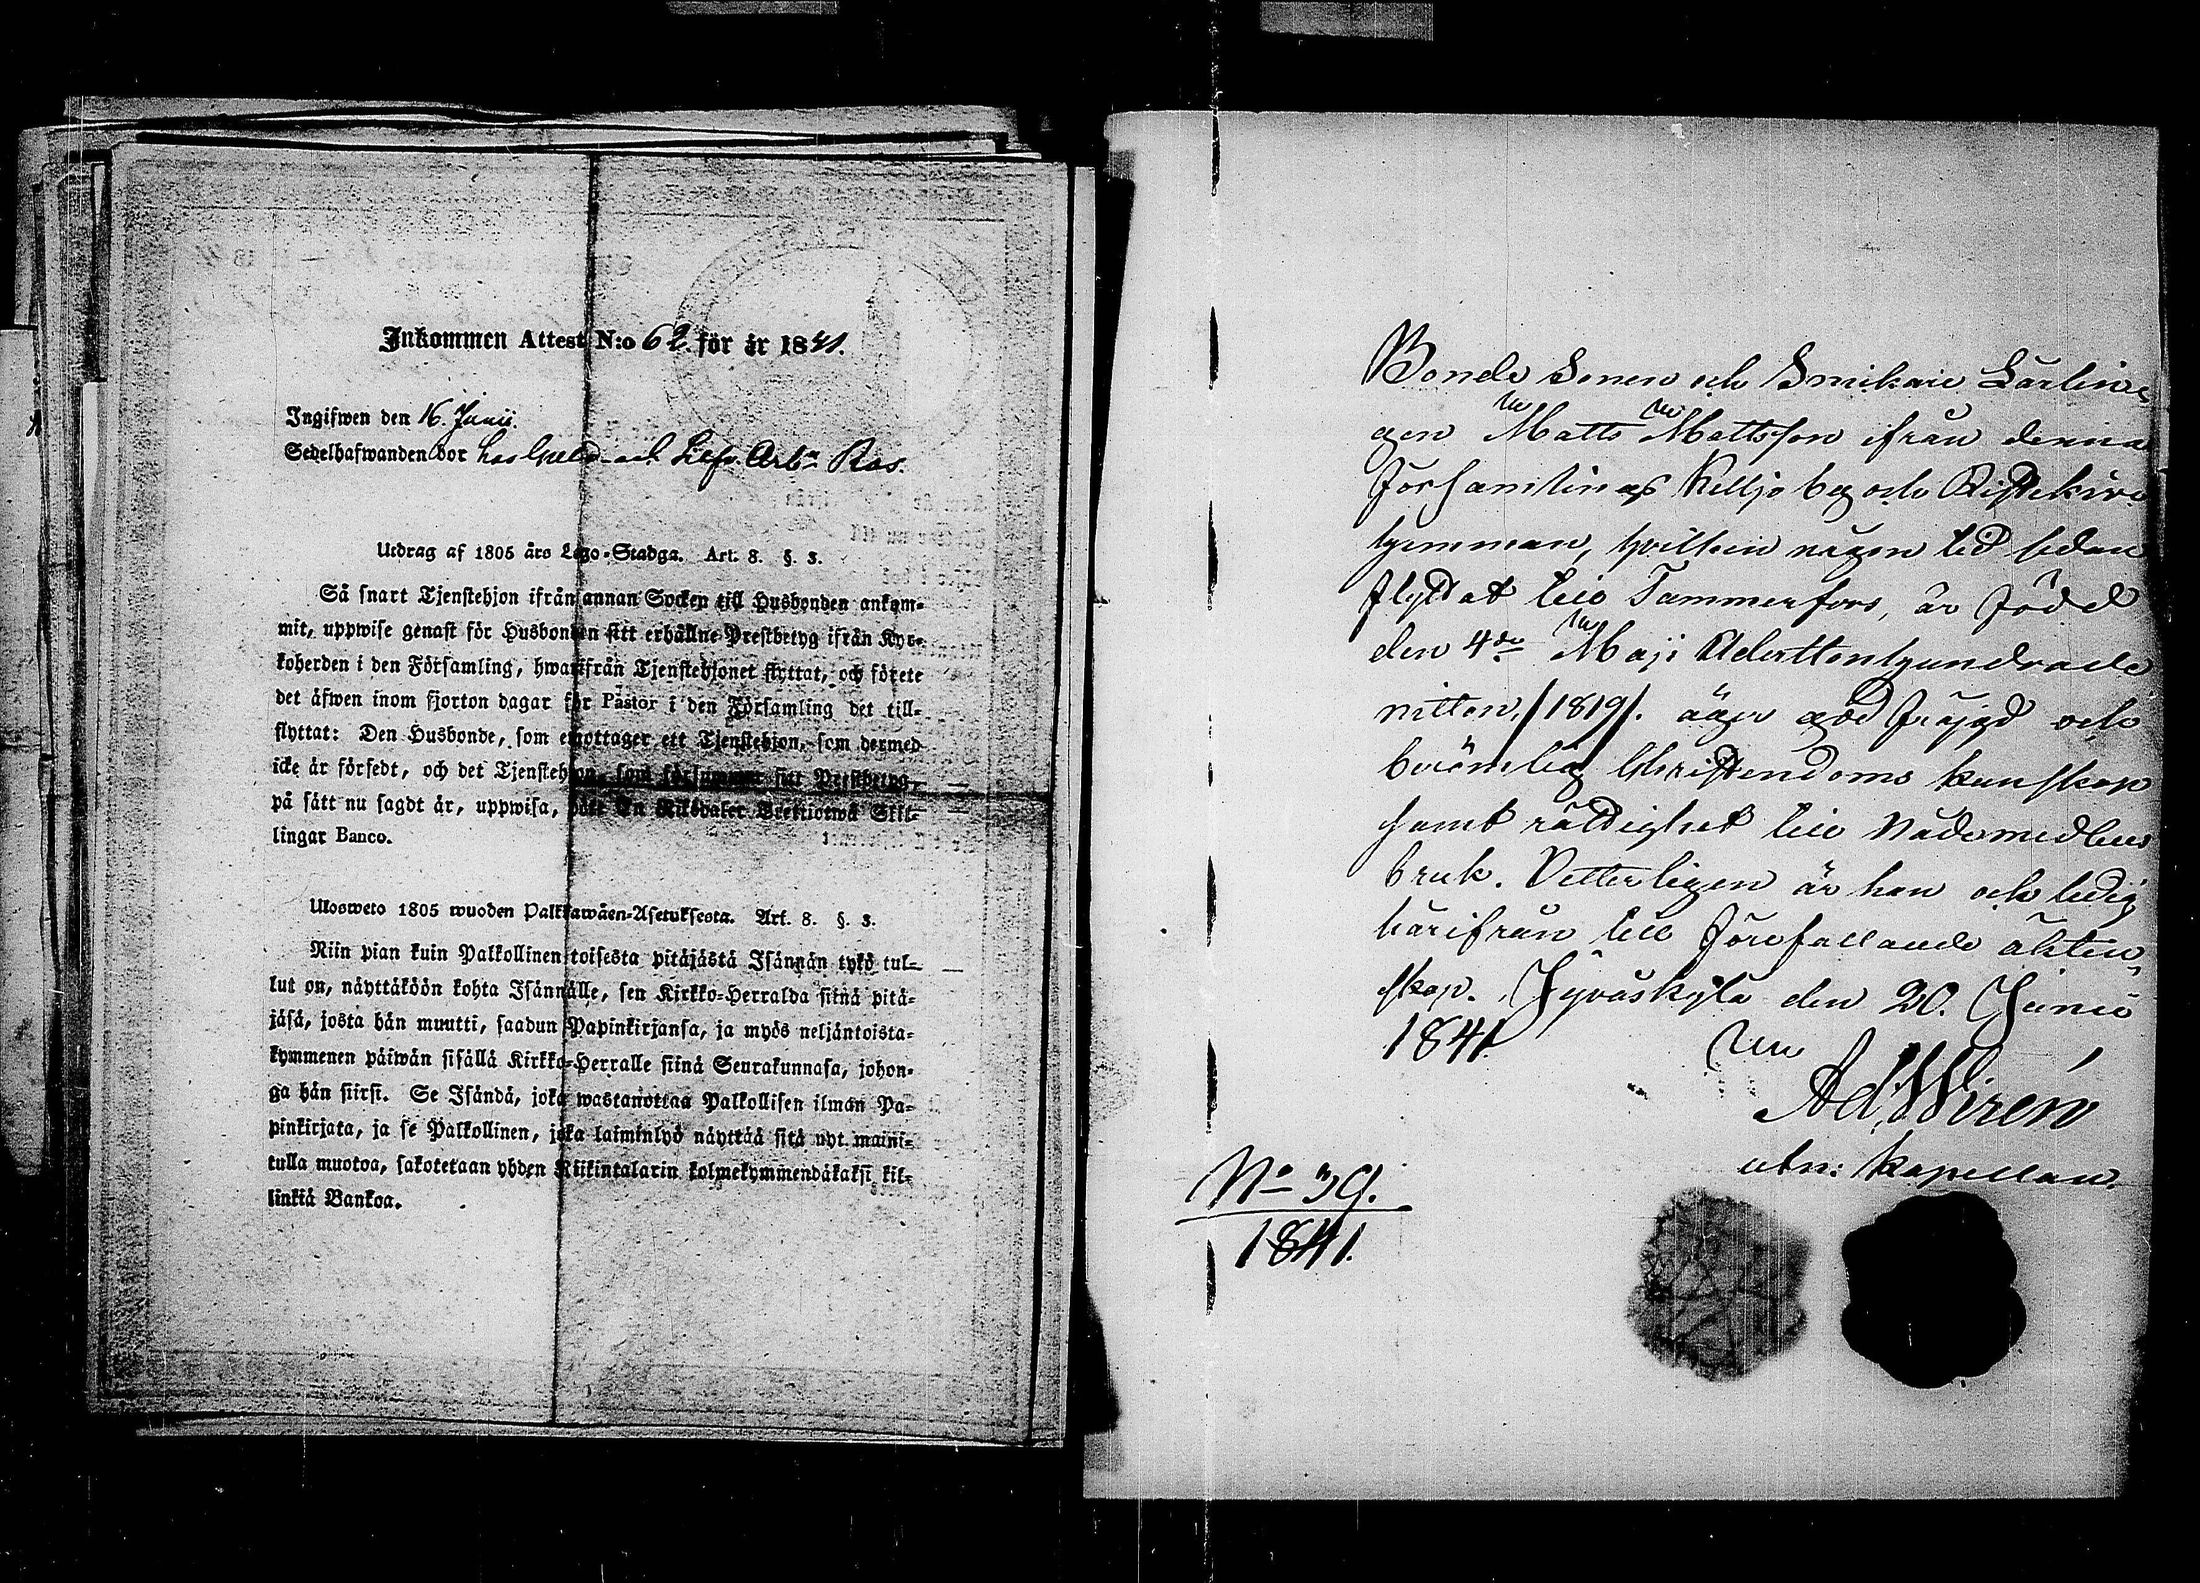 Inkommen Attest N:o 62. för år 1841.
Ingifwen den 16. Junii.
Sedelhafwanden bor hos Arb. Ros.
Utdrag af 1805 års Lego-Stadga. Art. 8. §. 3.
Så snart Tjenstehjon ifrån annan Socken till Husbonden ankom-
mit, uppwise genast för Husbonden sitt erhållne Prestbetyg ifrån Kyr-
koherden i den Församling, hwarifrån Tjenstehjonet flyttat, och förete
det äfwen inom fjorton dagar för Pastor i den Församling det till-
flyttat: Den Husbonde, som emottager ett Tjenstehjon, som dermed
icke är försedt, och det Tjenstehjon, som försummar sitt Prestbetyg,
på sätt nu sagdt är, uppwisa, böte En Riksdaler Trettiotwå Skil-
lingar Banco.
Ulosweto 1805 wuoden Palkkawäen-Asetuksesta. Art. 8. §. 3.
Niin pian kuin Palkollinen toisesta pitäjästä Isännän tykö tul-
lut on, näyttäköön kohta Isännälle, sen Kirkko-Herralda siinä pitä-
jäsä, josta hän muutti, saadun Papinkirjansa, ja myös neljäntoista-
kymmenen päiwän sisällä Kirkko-Herralle siinä Seurakunnasa, johon-
ga hän siirsi. Se Isändä, joka wastanottaa Palkollisen ilman Pa-
pinkirjata, ja se Palkollinen, joka laiminlyö näyttää sitä nyt maini-
tulla muotoa, sakotetaan yhden Riikintalarin kolmekymmendäkaksi kil-
linkiä Bankoa.
Bonde Sonen och Snickare Lärlin-
gen Matts Mattsson ifrån denna
Församlings Keljo by och
hemman, hvilken någon tid sedan
flyttat till Tammerfors, är född
den 4de Maji Adertonhundrade
nitton, /1819/. äger god frejd och
berömlig Christendoms kunskap
samt rättighet till Nådemedlens
bruk. Vetterligen är han och ledig
härifrån till förefallande äkten-
skap. Jyväskylä den 20. Junii
1841.
Ad. Wirén
utn: Kapellan.
No 39.
1841.